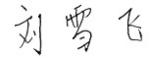 刘雪飞